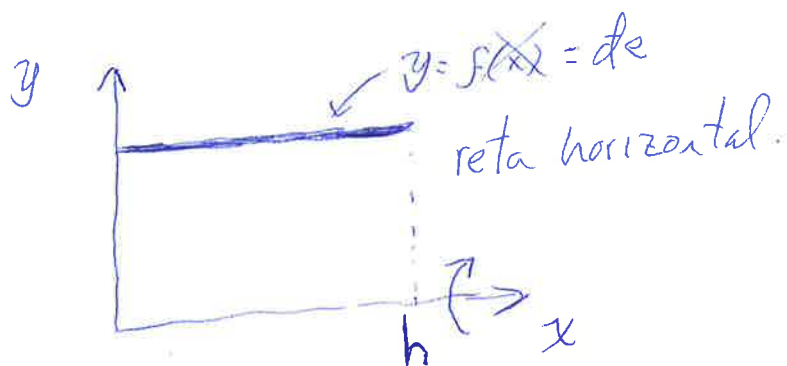 y
y = f(x) = cte
reta horizontal.
h
x